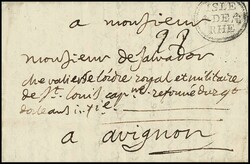 a monsieur
ISLE
DE
RHE
22
monsieur de salvador
chevalier de lordre royal et militaire
de St. louis cap.ne reformé du rgt
dorleans inf.ie
a avignon